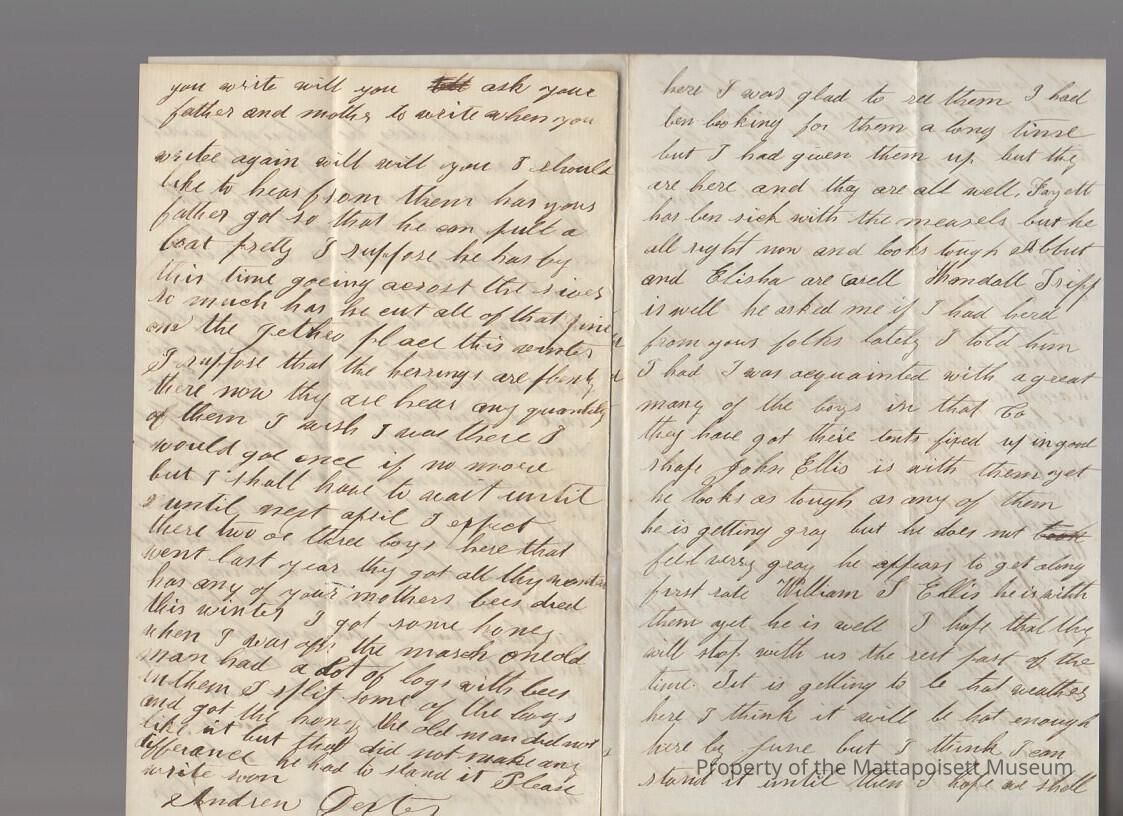 you write will you ask your
father and mother to write when you
writee again will will you I should
like to hear from them has your
father got so that he can pull a
boat pretty I suppose he has by
this time goeing acrost the river
so much has he cut all of that pine
on the place this winter
I suppose that the herrings are plenty
there now thy are hear any quantity
of them I wish I was there I
would got once if no more
but I shall have to wait until
until next april I expect
there two or three boys here that
went last year they got all thy wanted
has any of your mothers bees died
this winter I got some honey
when I was on the march one old
man had a lot of logs with bees
in them I split some of the logs
and got the honey the old man did not
like it but that did not make any
differance he had to stand it Please
write soon
Andrew Dexter
here I was glad to see them I had
ben looking for them a long time
but I had given them up but thy
are here and they are all well, Fayett
has ben sick with the measels but he
all right now and looks tough Abbut
and Elisha are well Wendall Tripp
is well he asked me if I had herd
from your folks lately I told him
I had I was acquainted with a great
many of the boys in that Co
they have got theire tents fixed up in good
shape John Ellis is with them yet
he looks as tough as any of them
he is getting gray but he does not
feel very gray he appears to get along
first rate William S Ellis he is with
them yet he is well I hope that thy
will stop with us the rest part of the
time. It is getting to be hot weather
here I think it will be hot enough
here by june but I think I can
stand it until then I hope we shall
Property of the Mattapoisett Museum